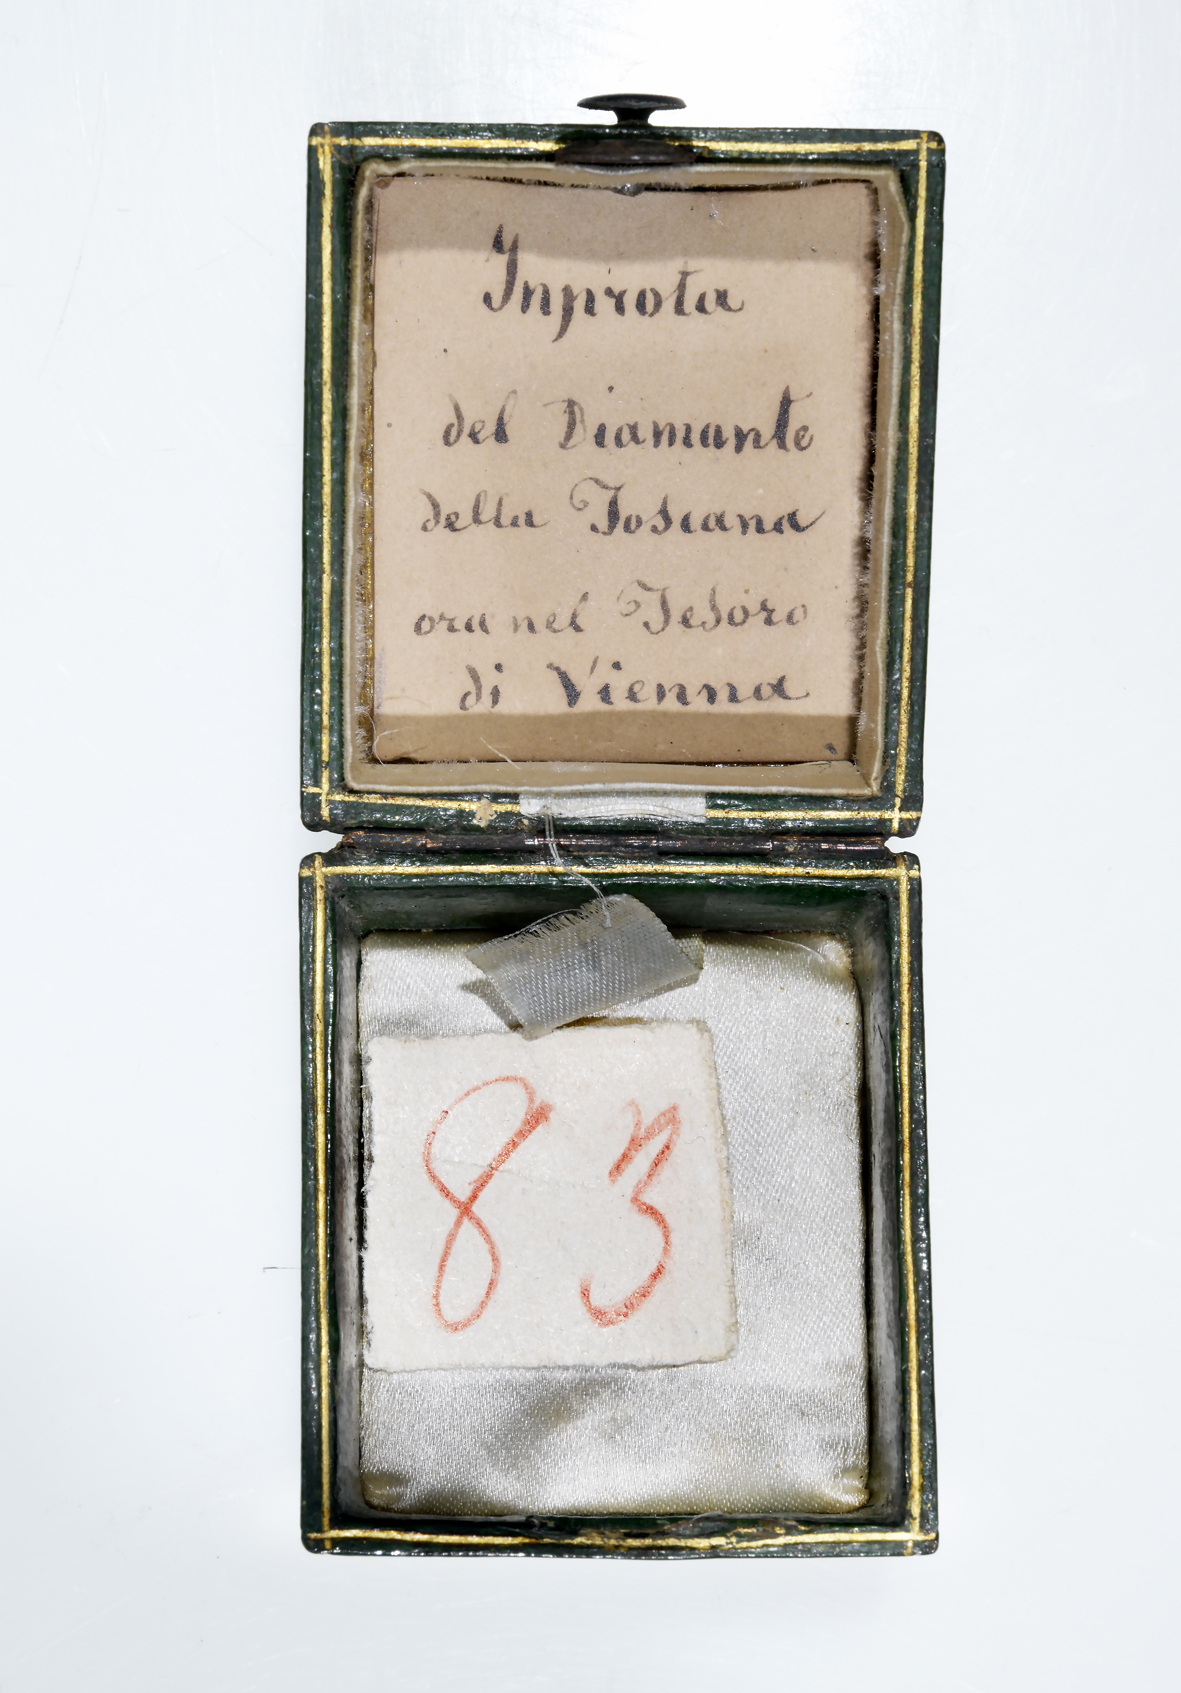 Inprota
del Diamante
della Toscana
ora nel Tesoro
di Vienna
83